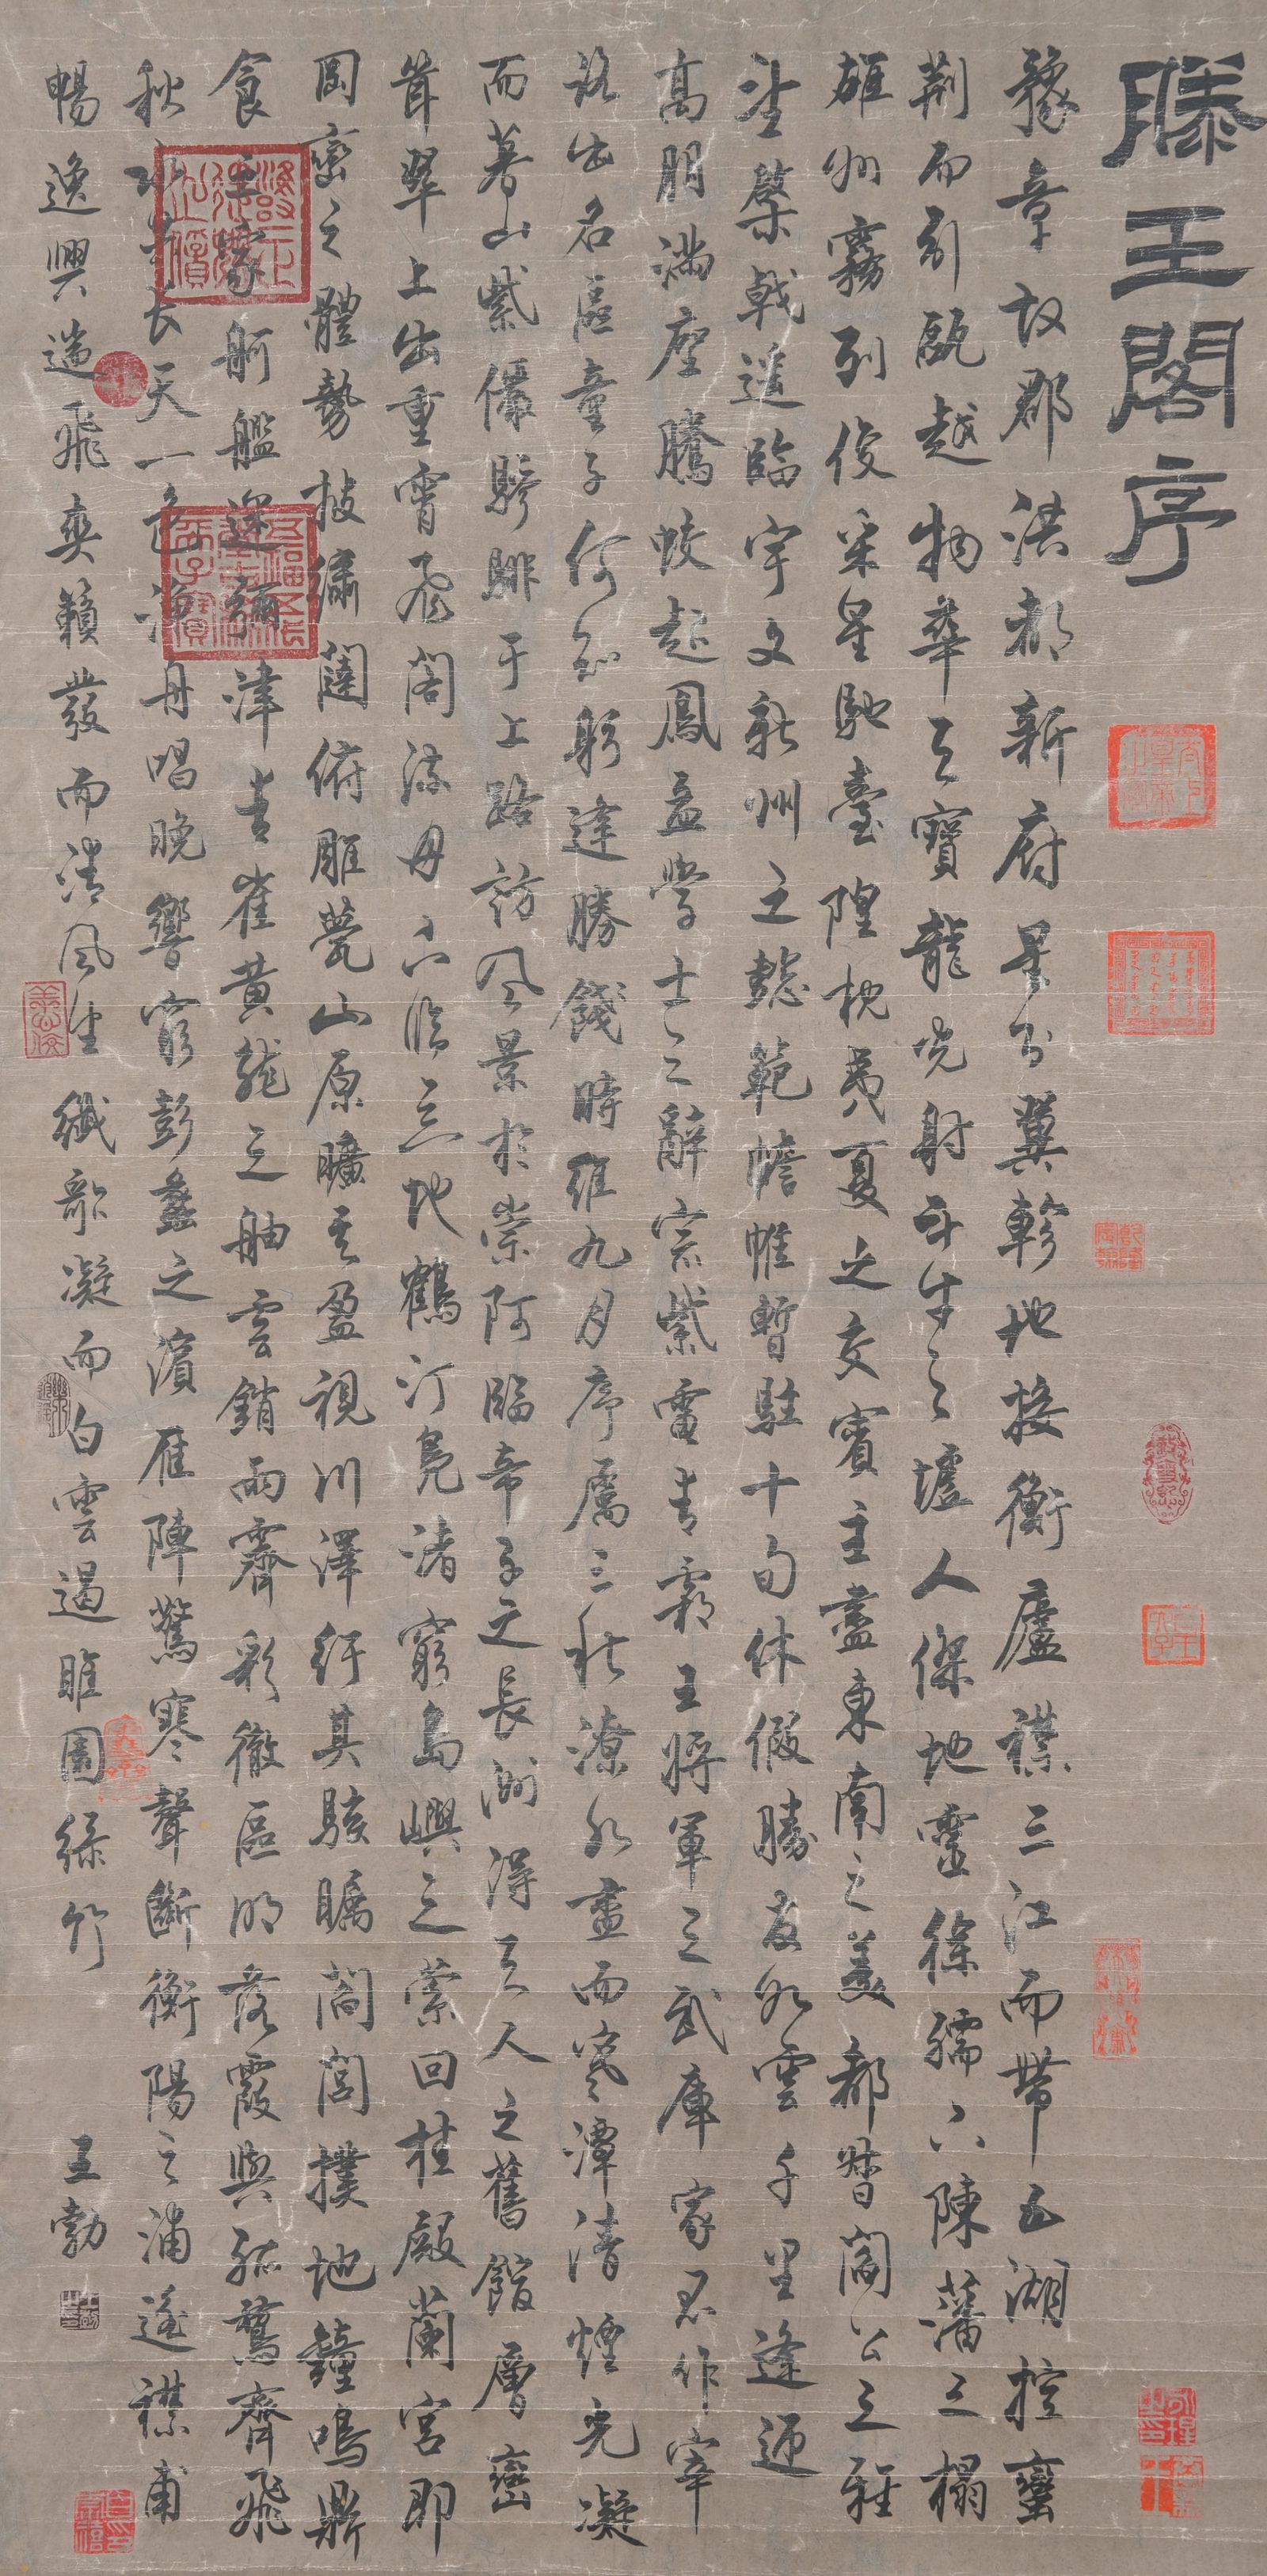 滕王閣序
豫章故郡洪都新府星分翼軫地接衡廬襟三江而帶五湖控蠻
荆而引甌越物華天寶龍光射斗牛之墟人傑地靈徐孺下陳蕃之榻
雄州霧列俊采星馳臺隍枕夷夏之交賓主盡東南之美都督閻公之雅
望棨戟遥臨宇文新州之懿範襜帷暫駐十旬休假勝友如雲千里逢迎
高朋滿座騰蛟起鳳孟學士之辭宗紫電青霜王將軍之武庫家君作宰
路出名區童子何知躬逢勝餞時維九月序屬三秋潦水盡而寒潭清煙光凝
而暮山紫儼驂騑于上路訪風景於崇阿臨帝子之長洲得天人之舊館層巒
聳翠上出重霄飛閣流丹下臨無地鶴汀鳧渚窮島嶼之縈回桂殿蘭宮即
岡巒之體勢披繡闥俯雕甍山原曠其盈視川澤紆其駭矚閭閻撲地鐘鳴鼎
食之家舸艦迷津青雀黃龍之舳雲銷雨霽彩徹區明落霞與孤鶩齊飛
秋水共長天一色漁舟唱晚響窮彭蠡之濱雁陣驚寒聲斷衡陽之浦遙襟甫
暢逸興遄飛爽籟發而清風生纖歌凝而白雲遏睢園綠竹
王勃